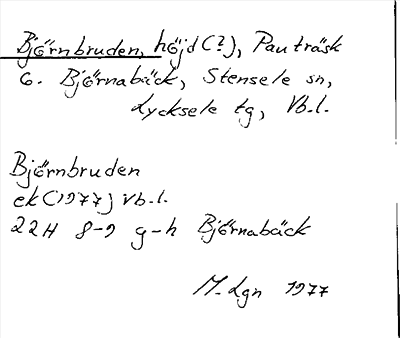 Björnbruden, höjd(?), Pauträsk
6. Björnabäck, Stensele sn,
Lycksele tg, Vb.l.
Björnbruden
ek(1977) Vb.l.
22H 8-9 g-h Björnabäck
M. Lgn 1977